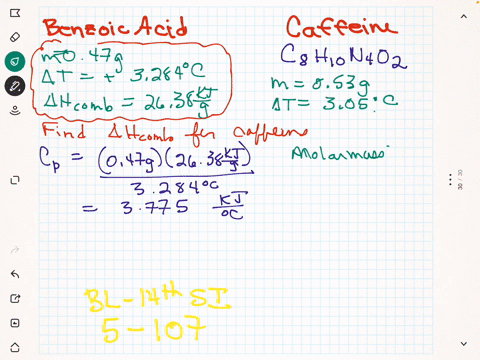 Benzoic Acid
m = 0.47g
ΔT = + 3.284°C
ΔHcomb = 26.38 kJ/g
Caffeine
C8H10N4O2
m = 0.53g
ΔT = 3.05°C
Find ΔHcomb for caffeine
molar mass
Cp = (0.47g)(26.38 kJ/g)
3.284°C
= 3.775 kJ/°C
BL - 14th SI
5 - 107
30 / 30